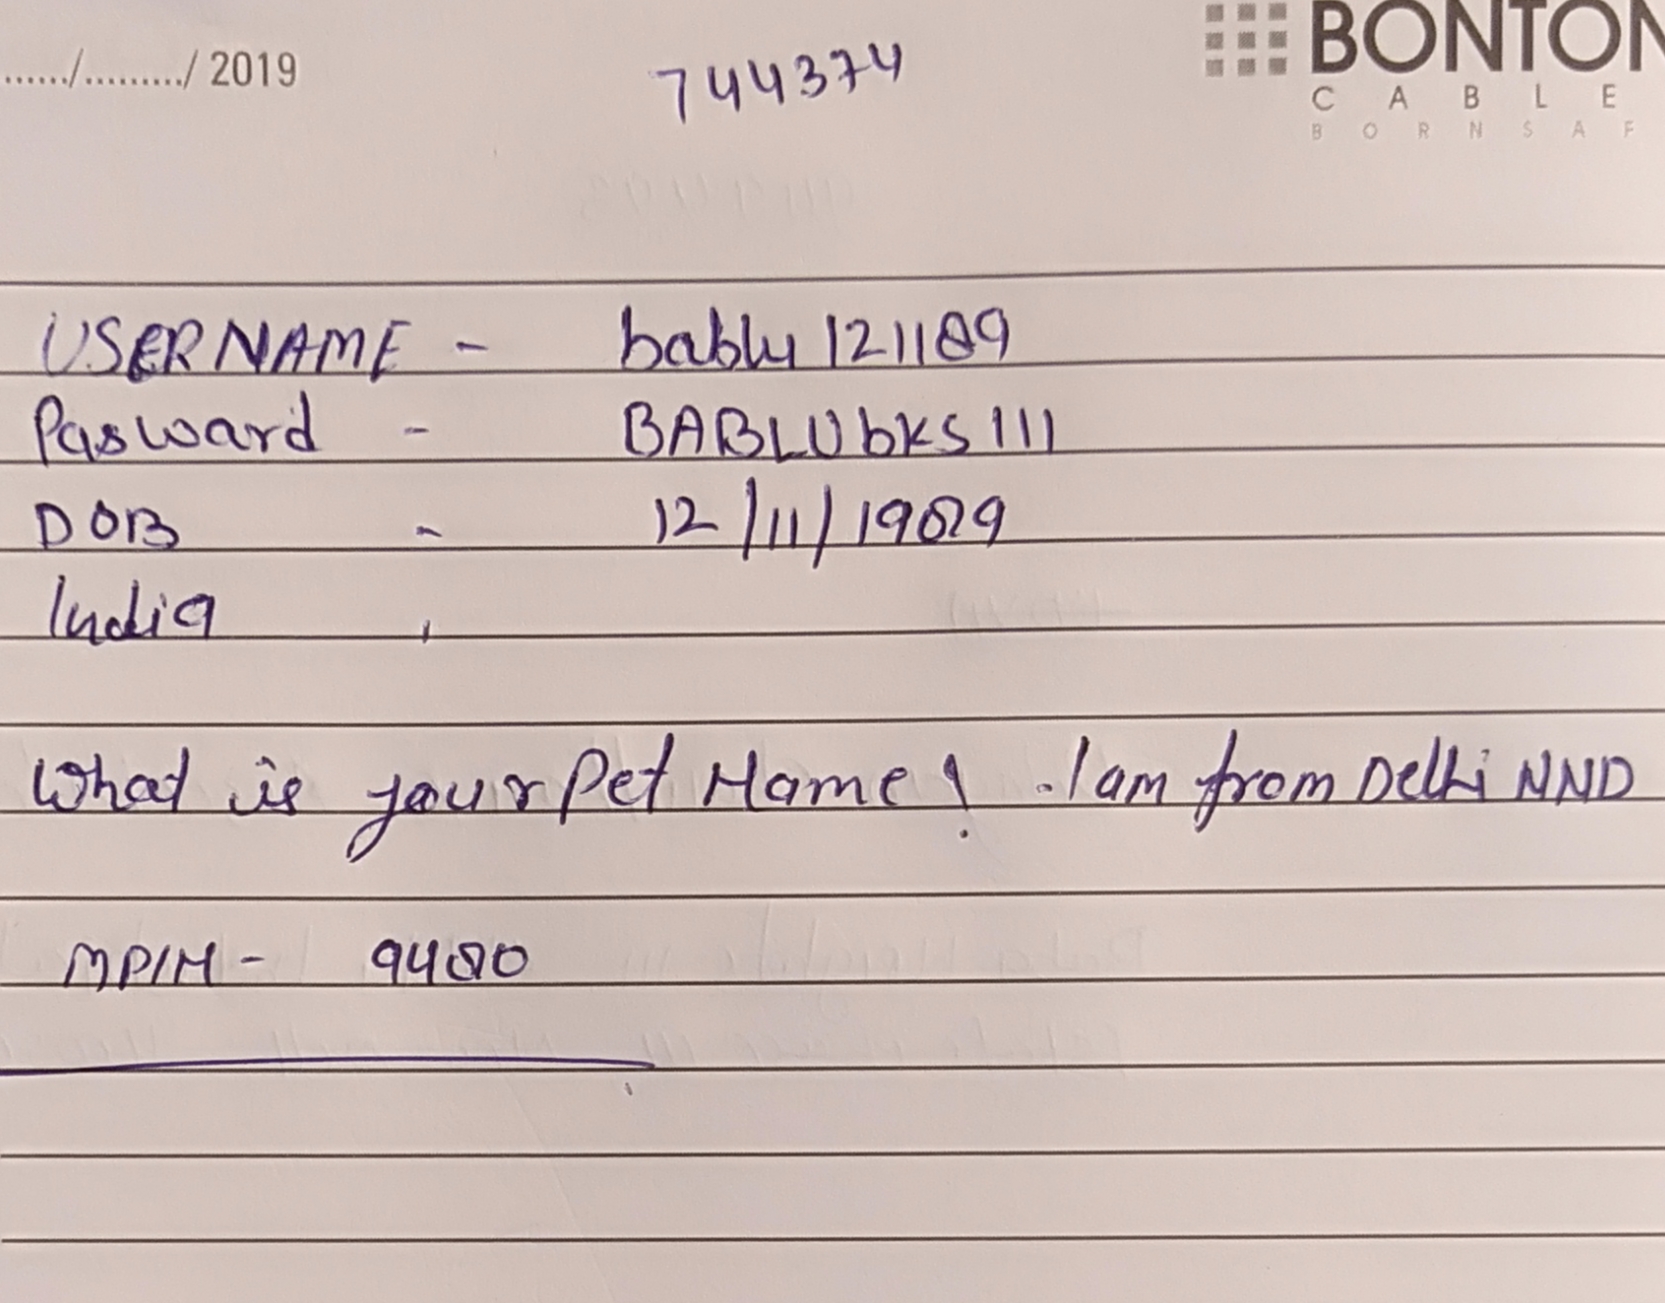 ....../........./ 2019
744374
BONTON
CABLE
BORN SAF
USERNAME - bablu 121189
Pasward - BABLUbKS111
DOB - 12/11/1989
India
What is your Pet Name? - I am from Delhi NND
MPIN - 9480